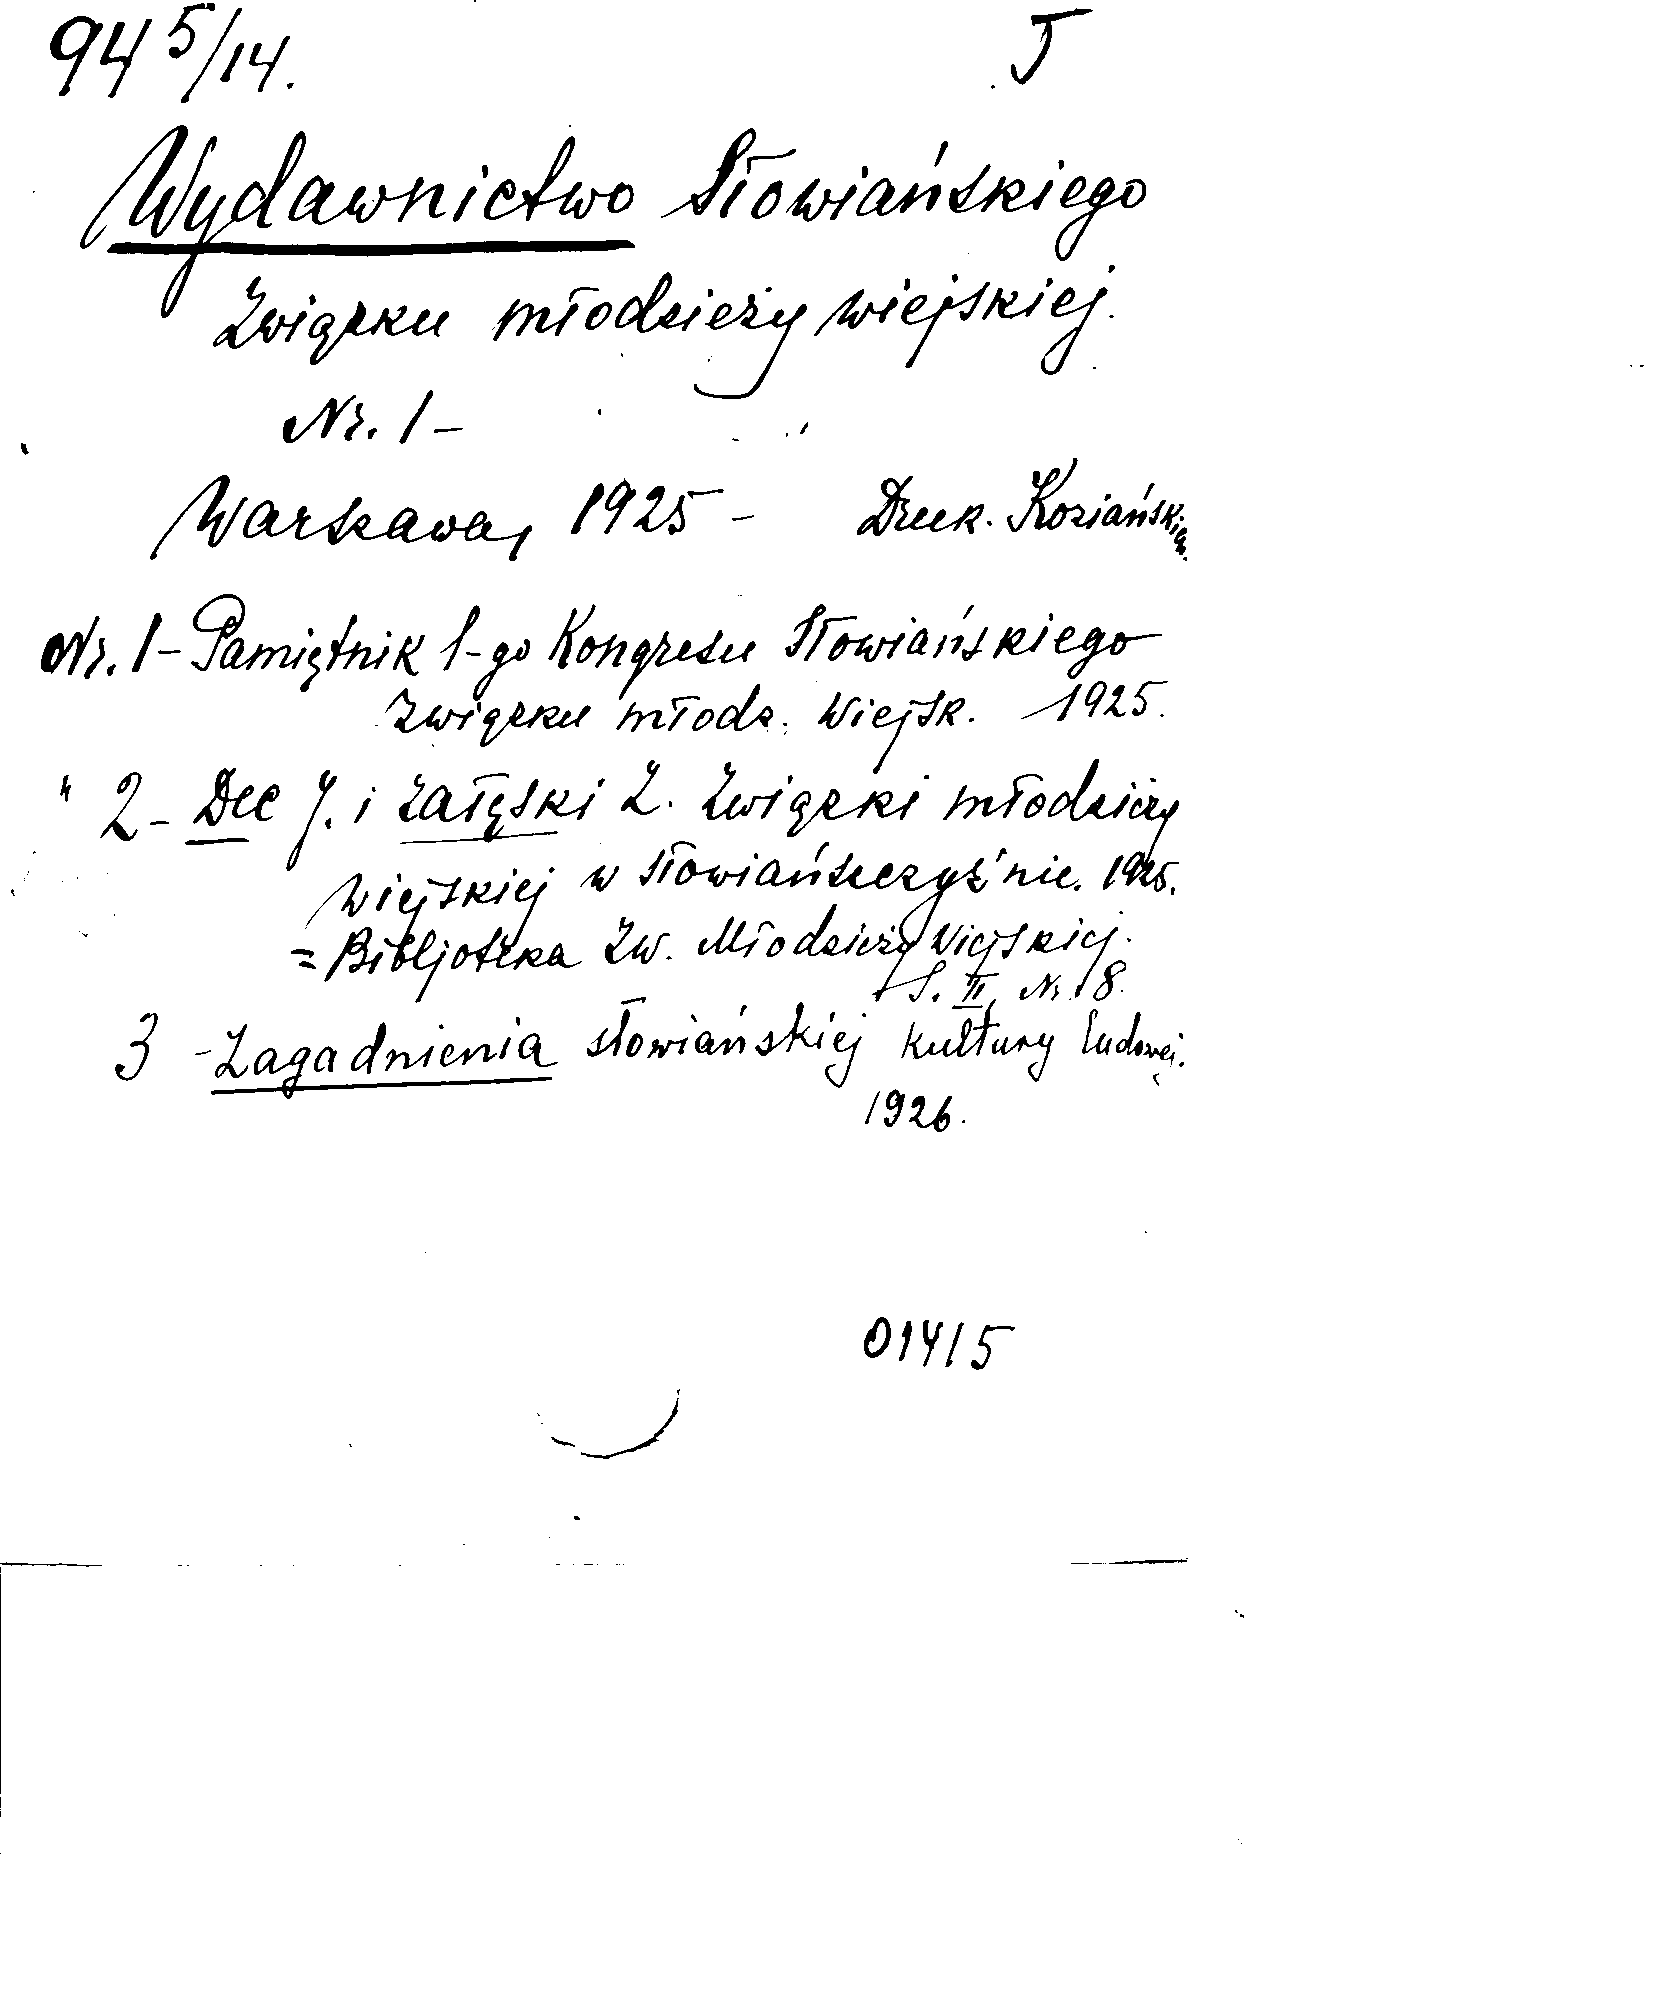 94 5/14. J
Wydawnictwo Słowiańskiego
Związku młodzieży wiejskiej.
Nr. 1 -
Warszawa, 1925 - Druk. Koziańskich.
Nr. 1 - Pamiętnik 1-go Kongresu Słowiańskiego
Związku młodz. Wiejsk. 1925.
" 2 - Dec J. i Załęski Z. Związki młodzieży
Wiejskiej w Słowiańszczyźnie. 1925.
= Bibljoteka Zw. Młodzieży Wiejskiej.
S. II, Nr. 8.
3 - Zagadnienia słowiańskiej kultury ludowej.
1926.
01415